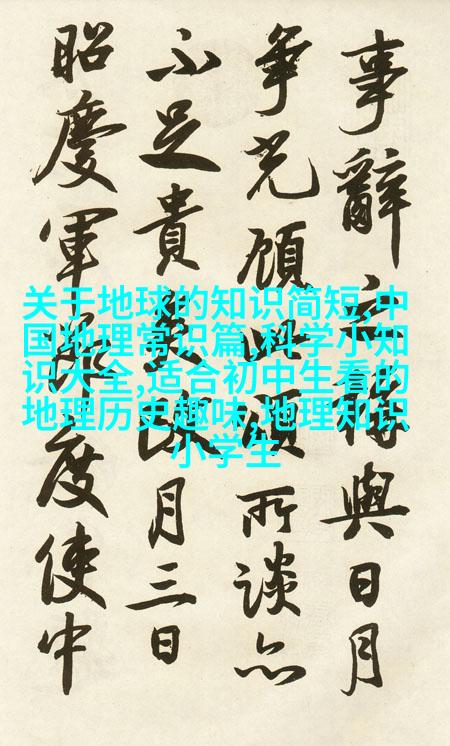 事辭與日月
爭光顧此所談亦
不足貴月三日
昭慶軍度使中
关于地球的知识简短,中
国地理常识篇,科学小知
识大全,适合初中生看的
地理历史趣味,地理知识
小学生